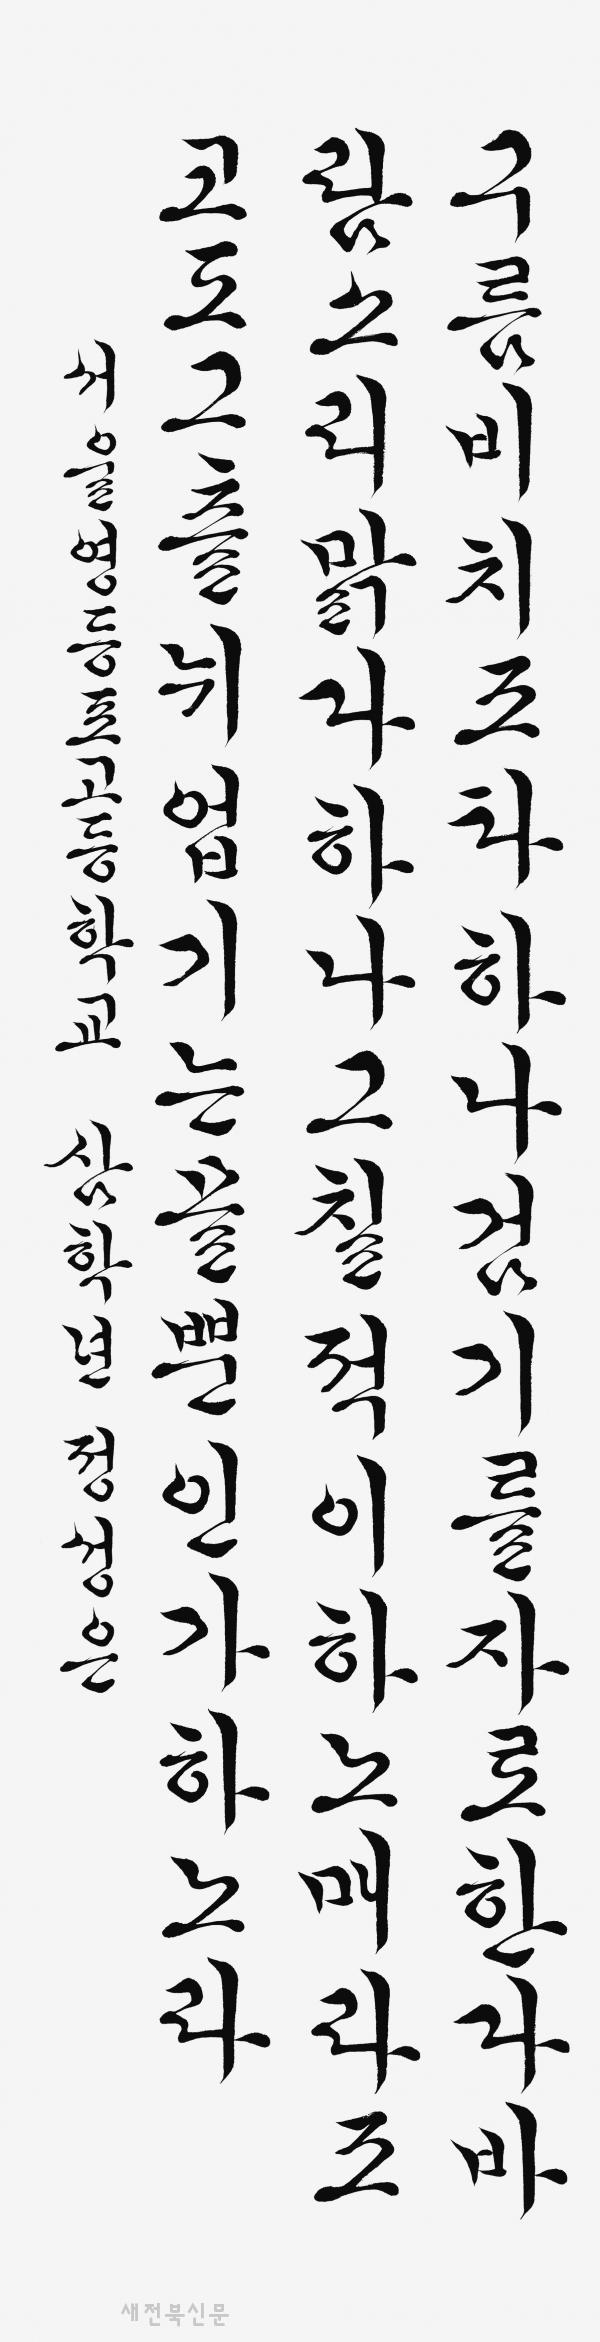 구름비치조타하나검기를자로한다바
람소리맑다하나그칠적이하노매라조
코도그츨뉘업기는믈뿐인가하노라
서울영등포고등학교 삼학년 정성은
새전북신문